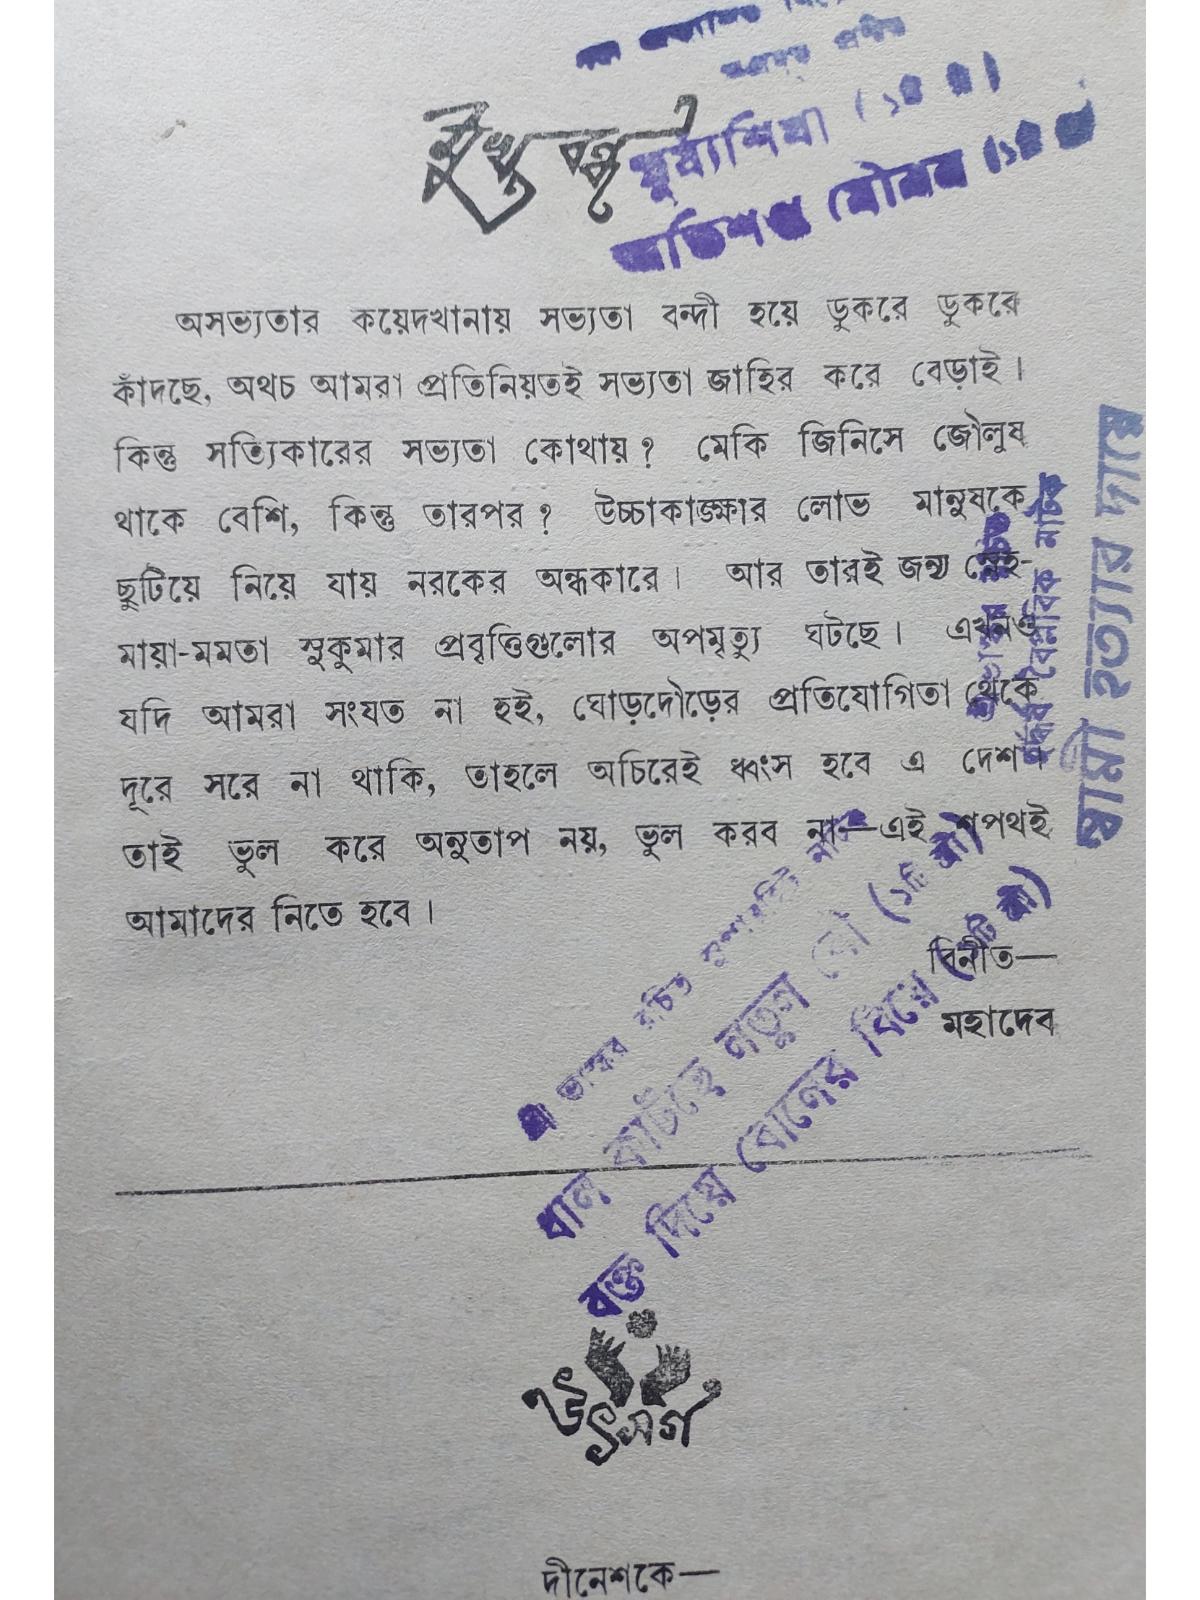 মুখবন্ধ
সূর্য্যশিখা (১টি
অভিশপ্ত যৌবন (১টি
অসভ্যতার কয়েদখানায় সভ্যতা বন্দী হয়ে ডুকরে ডুকরে
কাঁদছে, অথচ আমরা প্রতিনিয়তই সভ্যতা জাহির করে বেড়াই।
কিন্তু সত্যিকারের সভ্যতা কোথায়? মেকি জিনিসে জৌলুষ
থাকে বেশি, কিন্তু তারপর? উচ্চাকাঙ্ক্ষার লোভ মানুষকে
ছুটিয়ে নিয়ে যায় নরকের অন্ধকারে। আর তারই জন্য স্নেহ-
মায়া-মমতা সুকুমার প্রবৃত্তিগুলোর অপমৃত্যু ঘটছে। এখনও
যদি আমরা সংযত না হই, ঘোড়দৌড়ের প্রতিযোগিতা থেকে
দূরে সরে না থাকি, তাহলে অচিরেই ধ্বংস হবে এ দেশ।
তাই ভুল করে অনুতাপ নয়, ভুল করব না—এই শপথই
আমাদের নিতে হবে।
বিনীত—
মহাদেব
স্বামী হত্যার দায়ে
বৈপ্লবিক নাটক
ভাস্কর রচিত
ধান কাটছে নতুন বৌ (১টি স্ত্রী)
রক্ত দিয়ে বোনের বিয়ে
উৎসর্গ
দীনেশকে—